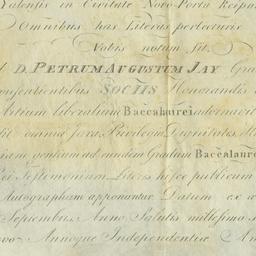 Yalensis in Civitate Novo-Portu Reipu
Omnibus has Literas perlecturis
Vobis notum sit,
D. PETRUM AUGUSTUM JAY Gra
onsentientibus SOCIIS Honorandis
Artium liberalium Baccalaurei adornavit
omnia Jura, Privilegia, Dignitates,
gentium ad eundem Gradum Baccalaure
Testimonium, Literis hisce publicum
Autographum apponuntur Datum ex
Septembris Anno Salutis millesimo
Annoque Independentiæ Am